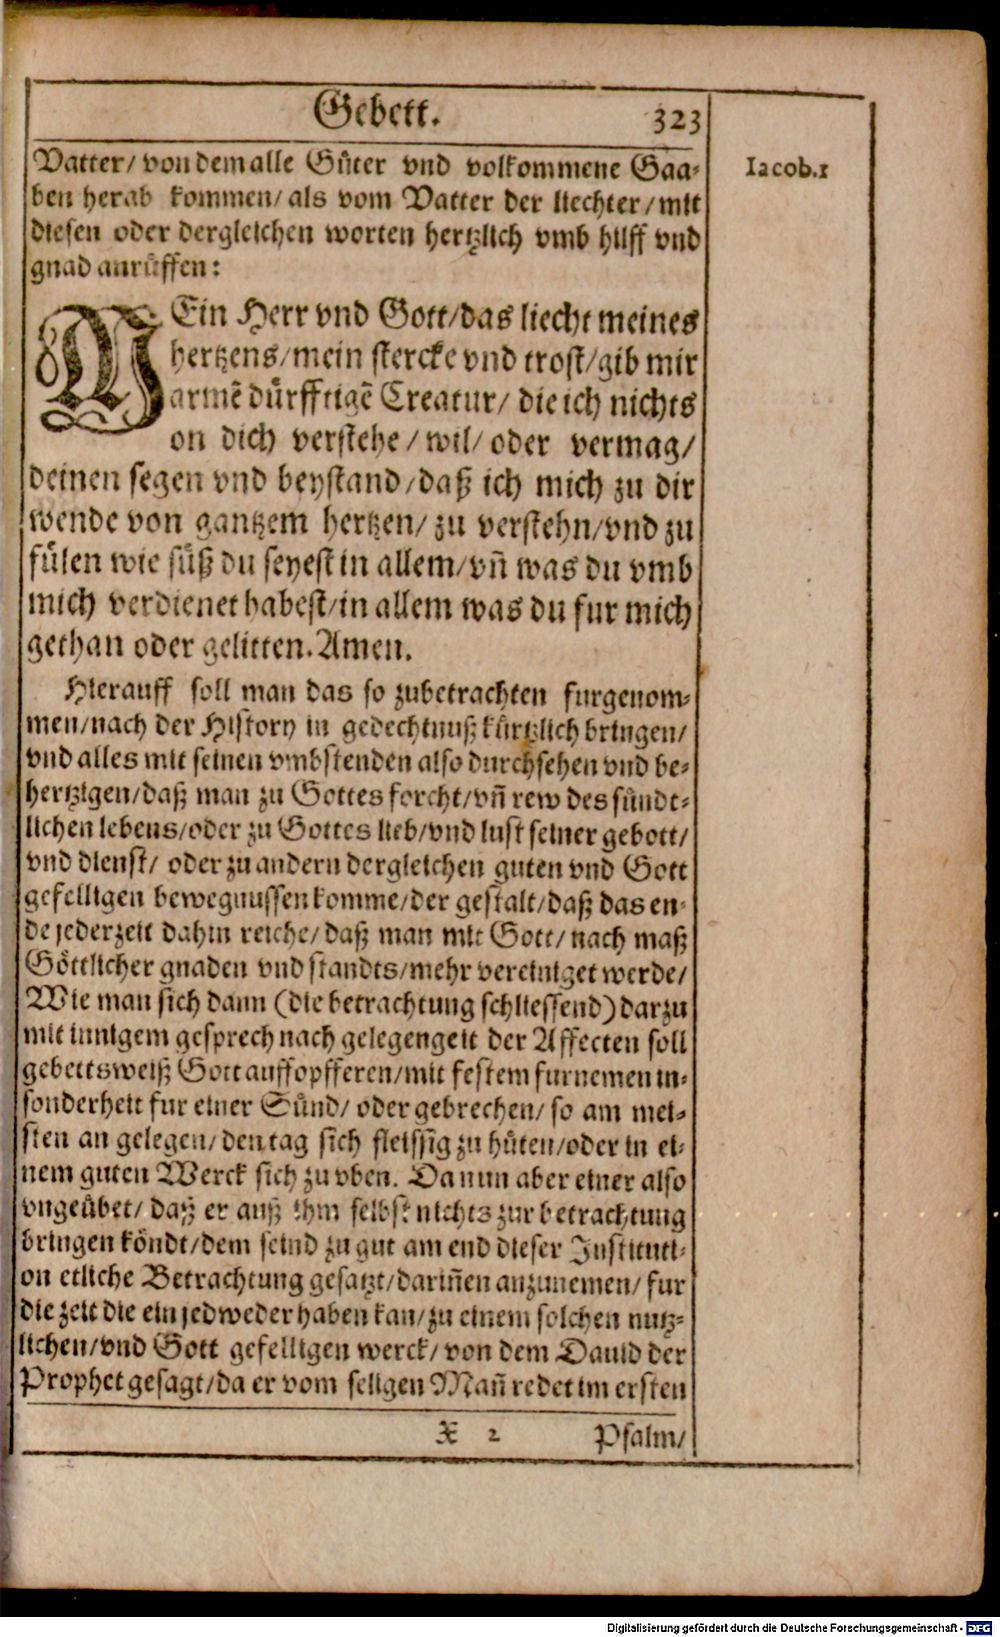 Gebett. 323
Vatter/ von dem alle Gůter vnd volkommene Gaa-
ben herab kommen/ als vom Vatter der liechter/ mit
diesen oder dergleichen worten hertzlich vmb hilff vnd
gnad anrůffen:
Iacob.1
MEin Herr vnd Gott/ das liecht meines
hertzens/ mein stercke vnd trost/ gib mir
armẽ důrfftigẽ Creatur/ die ich nichts
on dich verstehe/ wil/ oder vermag/
deinen segen vnd beystand/ daß ich mich zu dir
wende von gantzem hertzen/ zu verstehn/ vnd zu
fůlen wie sůß du seyest in allem/ vñ was du vmb
mich verdienet habest/ in allem was du fur mich
gethan oder gelitten. Amen.
Hierauff soll man das so zubetrachten furgenom-
men/ nach der History in gedechtnuß kůrtzlich bringen/
vnd alles mit seinen vmbstenden also durchsehen vnd be-
hertzigen/ daß man zu Gottes forcht/ vñ rew des sůndt-
lichen lebens/ oder zu Gottes lieb/ vnd lust seiner gebott/
vnd dienst/ oder zu andern dergleichen guten vnd Gott
gefelligen bewegnussen komme/ der gestalt/ daß das en-
de jederzeit dahin reiche/ daß man mit Gott/ nach maß
Göttlicher gnaden vnd standts/ mehr vereiniget werde/
Wie man sich dann (die betrachtung schliessend) darzu
mit innigem gesprech nach gelegengeit der Affecten soll
gebettsweiß Gott auffopfferen/ mit festem furnemen in-
sonderheit fur einer Sůnd/ oder gebrechen/ so am mei-
sten an gelegen/ den tag sich fleissig zu hůten/ oder in ei-
nem guten Werck sich zu vben. Da nun aber einer also
vngeůbet/ daß er auß ihm selbst nichts zur betrachtung
bringen köndt/ dem seind zu gut am end dieser Instituti-
on etliche Betrachtung gesatzt/ dariñen anzunemen/ fur
die zeit die ein jedweder haben kan/ zu einem solchen nutz-
lichen/ vnd Gott gefelligen werck/ von dem Dauid der
Prophet gesagt/ da er vom seligen Mañ redet im ersten
X 2 Psalm/
Digitalisierung gefördert durch die Deutsche Forschungsgemeinschaft - DFG